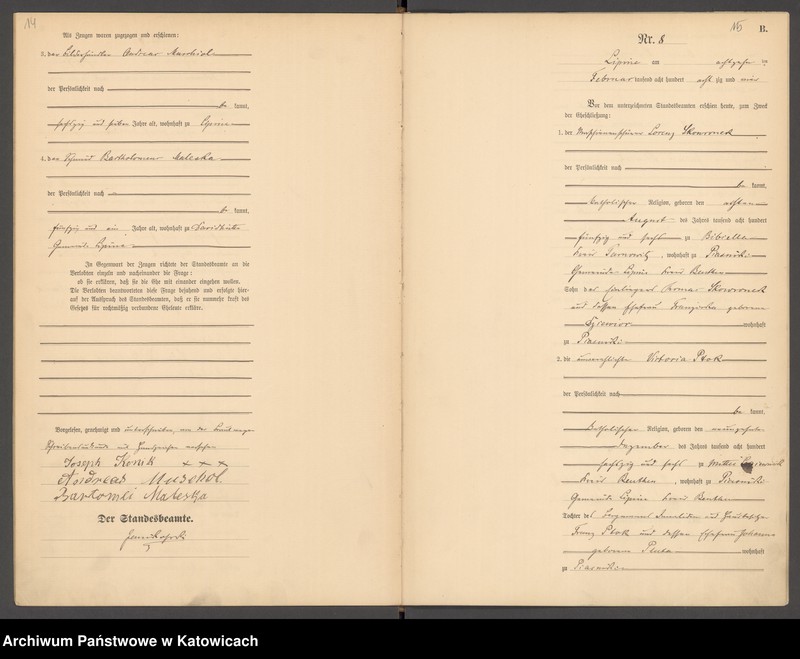 14
Als Zeugen waren zugezogen und erschienen:
3. der Andreas
der Persönlichkeit nach
be kannt,
sechszig und sieben Jahre alt, wohnhaft zu Lipine
4. der Schmied Bartholomeus Maleska
der Persönlichkeit nach
be kannt,
fünfzig und ein Jahre alt, wohnhaft zu
Gemeinde Lipine
In Gegenwart der Zeugen richtete der Standesbeamte an die
Verlobten einzeln und nacheinander die Frage:
ob sie erklären, daß sie die Ehe mit einander eingehen wollen.
Die Verlobten beantworteten diese Frage bejahend und erfolgte hier-
auf der Ausspruch des Standesbeamten, daß er sie nunmehr kraft des
Gesetzes für rechtmäßig verbundene Eheleute erkläre.
Vorgelesen, genehmigt und unterschrieben, von der
und Handzeichen versehen
Joseph Konik + + +
Andreas
Bartomli Maleska
Der Standesbeamte.
15
B.
Nr. 8
Lipine am achtzehn ten
Februar tausend acht hundert acht zig und vier
Vor dem unterzeichneten Standesbeamten erschien heute, zum Zweck
der Eheschließung:
1. der Lorenz Skowronek
der Persönlichkeit nach
be kannt,
katholischer Religion, geboren den achten
August des Jahres tausend acht hundert
fünfzig und sechs zu Bibiella
Kreis Tarnowitz, wohnhaft zu Piasniki
Gemeinde Lipine Kreis Beuthen
Sohn des Skowronek
und dessen Ehefrau Franziska geborene
wohnhaft
zu Piasniki
2. die unverehelichte Victoria Ptok
der Persönlichkeit nach
be kannt,
katholischer Religion, geboren den neunzehnten
Dezember des Jahres tausend acht hundert
sechszig und sechs zu
Kreis Beuthen, wohnhaft zu Piasniki
Gemeinde Lipine Kreis Beuthen
Tochter des Bergmanns Invaliden und
Franz Ptok und dessen Ehefrau Johanna
geborene Pluta wohnhaft
zu Piasniki
Archiwum Państwowe w Katowicach